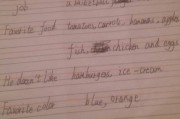 job
Favorite food tomatoes, carrots, bananas, apples
fish, chicken and eggs
He doesn't like hamburgers, ice-cream
Favorite color blue, orange